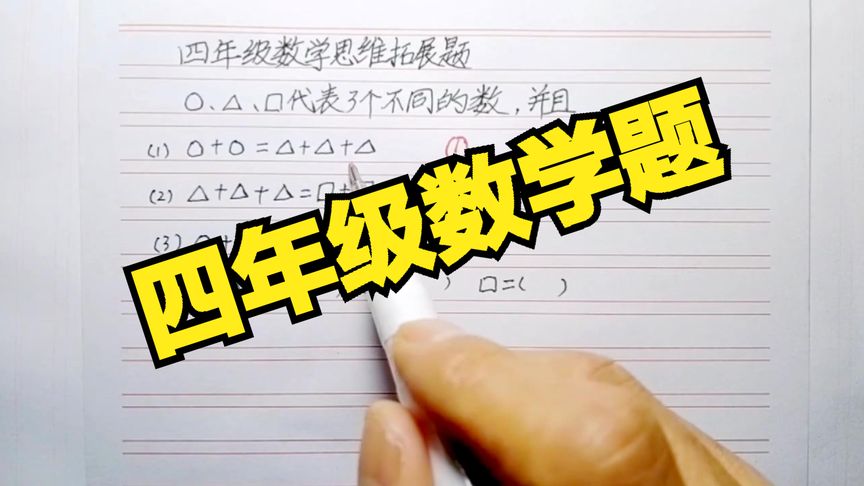 四年级数学思维拓展题
○、△、□代表3个不同的数，并且
(1) ○+○=△+△+△ ①
(2) △+△+△=□+
(3) ○+
) □=( )
四年级数学题